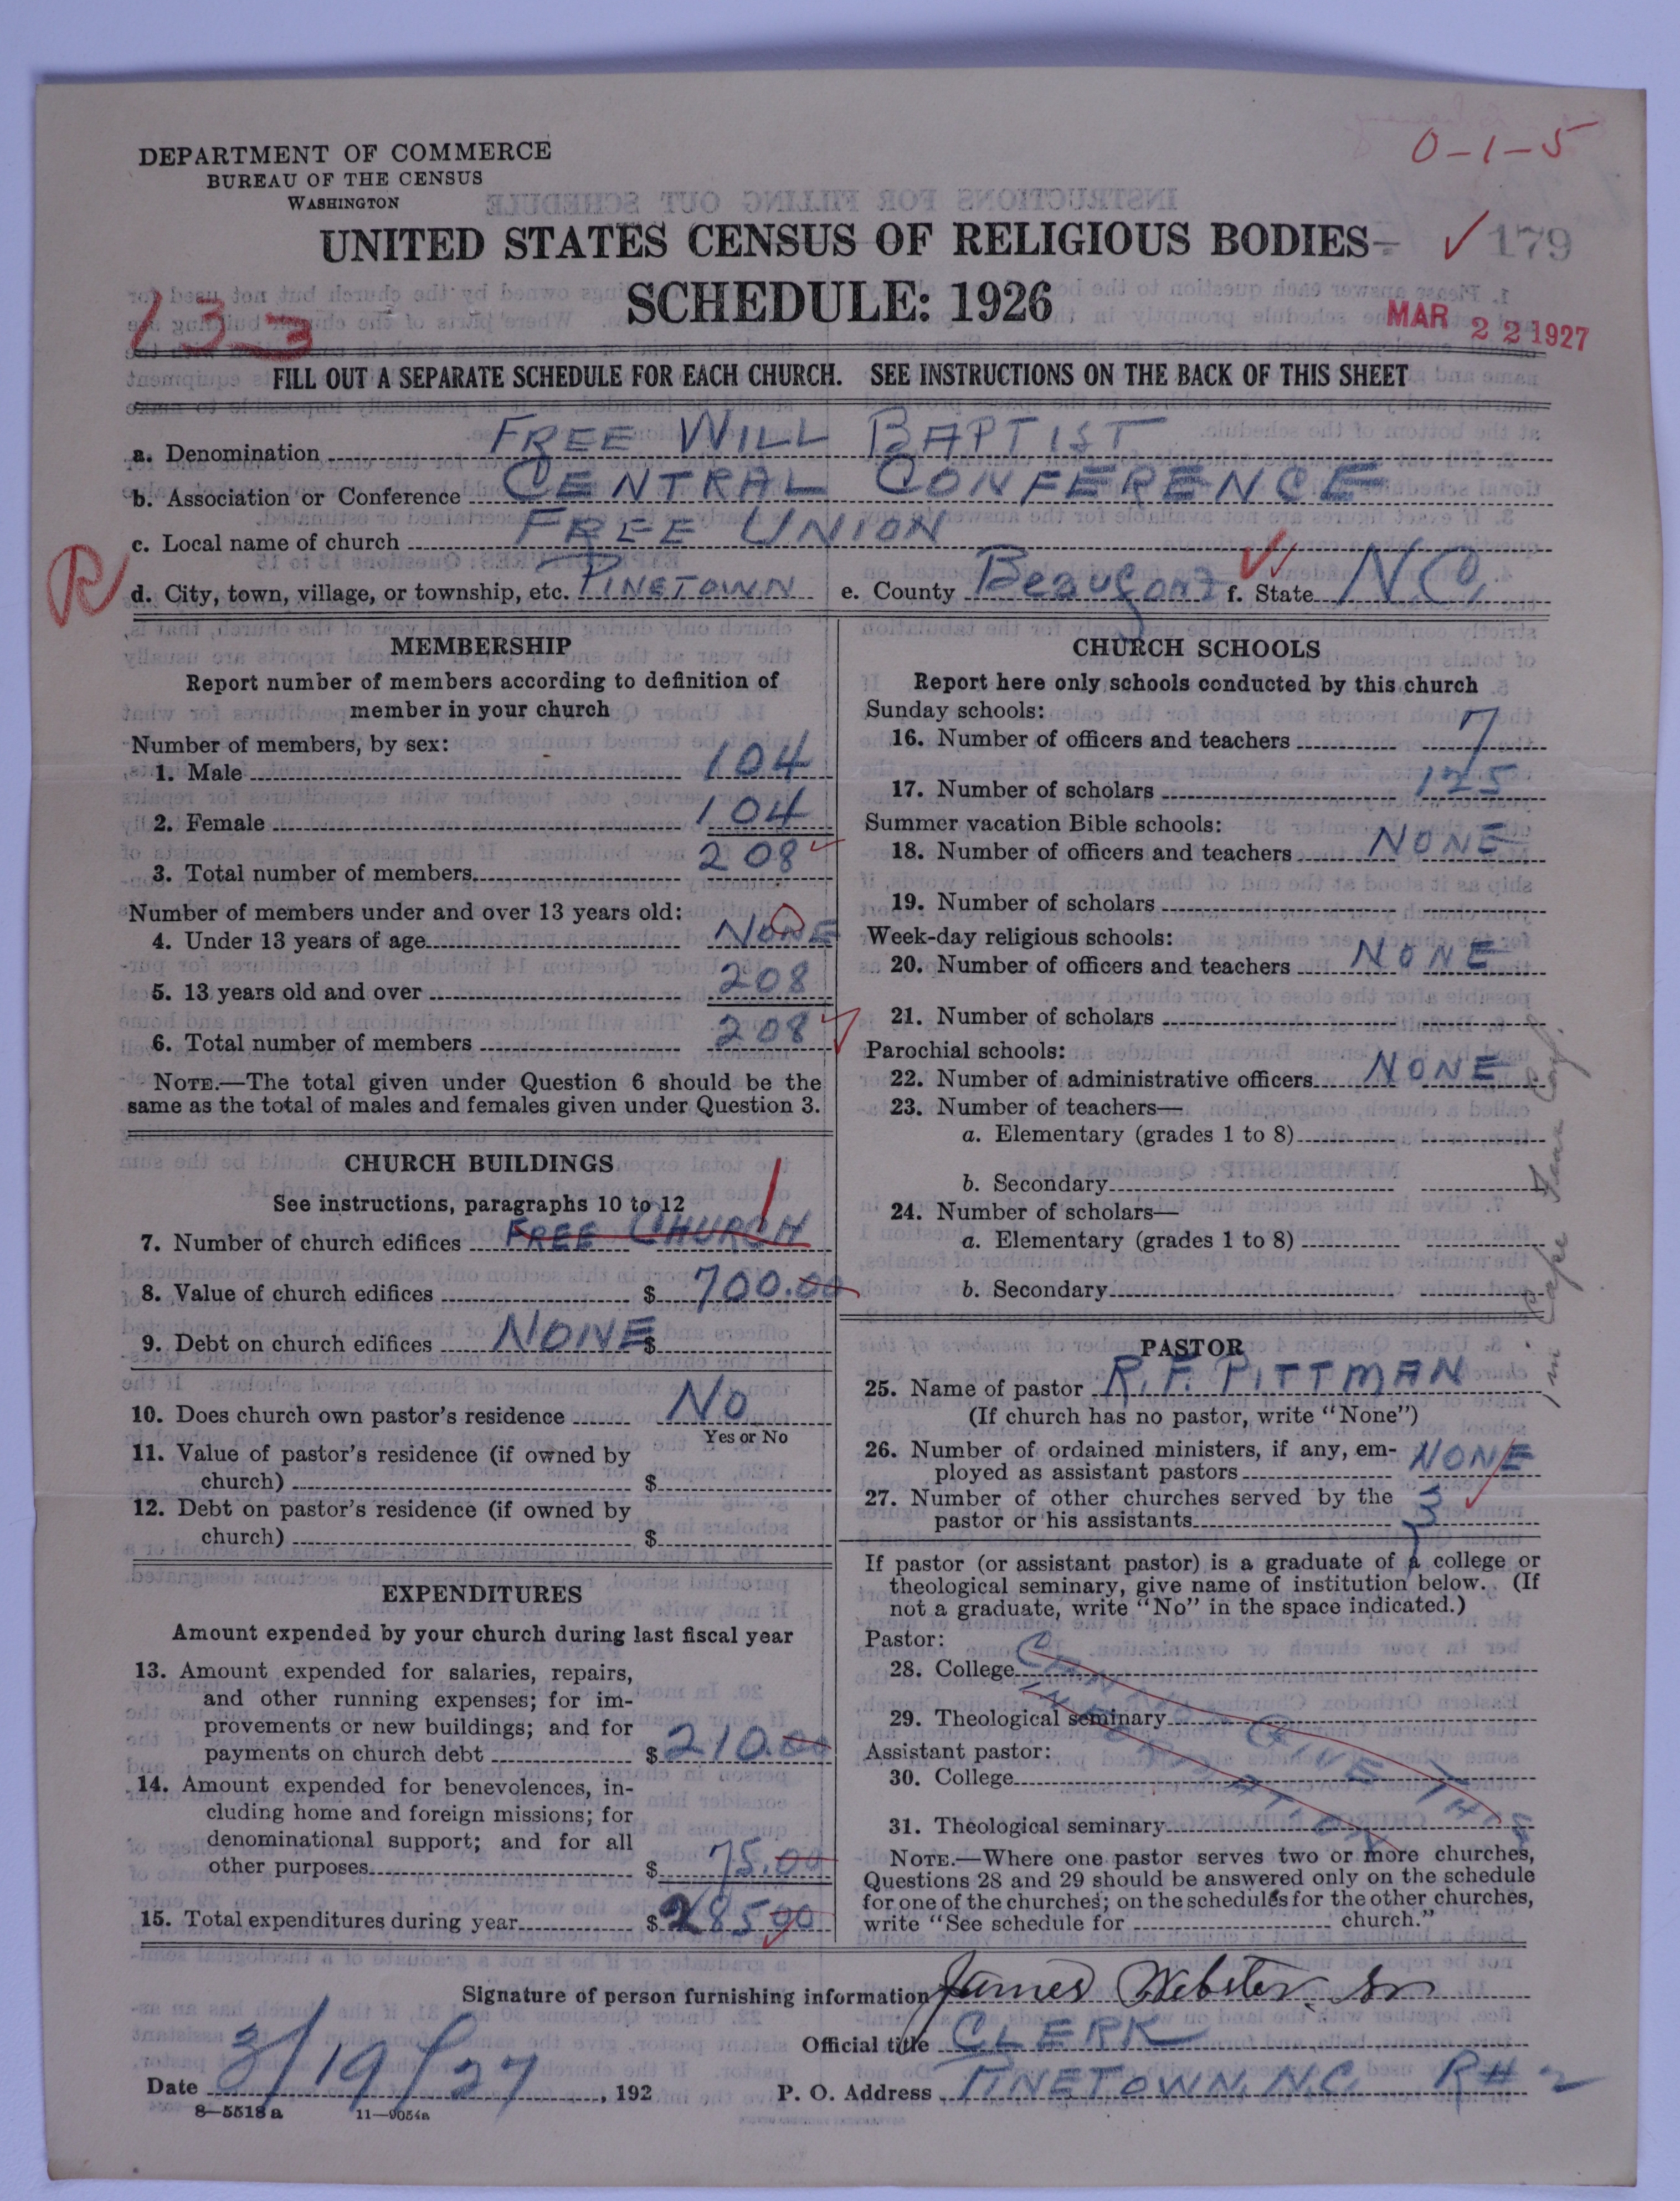 0-1-5
DEPARTMENT OF COMMERCE
BUREAU OF THE CENSUS
WASHINGTON
UNITED STATES CENSUS OF RELIGIOUS BODIES
179
SCHEDULE: 1926
133
MAR 22 1927
FILL OUT A SEPARATE SCHEDULE FOR EACH CHURCH. SEE INSTRUCTIONS ON THE BACK OF THIS SHEET
a. Denomination FREE WILL BAPTIST
b. Association or Conference CENTRAL CONFERENCE
c. Local name of church FREE UNION
R
d. City, town, village, or township, etc. PINETOWN e. County Beaufort f. State N.C.
MEMBERSHIP
Report number of members according to definition of
member in your church
Number of members, by sex:
1. Male 104
2. Female 104
3. Total number of members 208
Number of members under and over 13 years old:
4. Under 13 years of age NONE
5. 13 years old and over 208
6. Total number of members 208
NOTE.—The total given under Question 6 should be the
same as the total of males and females given under Question 3.
CHURCH BUILDINGS
See instructions, paragraphs 10 to 12
7. Number of church edifices FREE CHURCH 1
8. Value of church edifices $ 700.00
9. Debt on church edifices NONE $
10. Does church own pastor's residence No
Yes or No
11. Value of pastor's residence (if owned by
church) $
12. Debt on pastor's residence (if owned by
church) $
EXPENDITURES
Amount expended by your church during last fiscal year
13. Amount expended for salaries, repairs,
and other running expenses; for im-
provements or new buildings; and for
payments on church debt $ 210.00
14. Amount expended for benevolences, in-
cluding home and foreign missions; for
denominational support; and for all
other purposes $ 75.00
15. Total expenditures during year $ 285.00
CHURCH SCHOOLS
Report here only schools conducted by this church
Sunday schools:
16. Number of officers and teachers 7
17. Number of scholars 125
Summer vacation Bible schools:
18. Number of officers and teachers NONE
19. Number of scholars
Week-day religious schools:
20. Number of officers and teachers NONE
21. Number of scholars
Parochial schools:
22. Number of administrative officers NONE
23. Number of teachers—
a. Elementary (grades 1 to 8)
b. Secondary
24. Number of scholars—
a. Elementary (grades 1 to 8)
b. Secondary
in Cape Fear Conf.
PASTOR
25. Name of pastor R. F. PITTMAN
(If church has no pastor, write "None")
26. Number of ordained ministers, if any, em-
ployed as assistant pastors NONE
27. Number of other churches served by the
pastor or his assistants 3
If pastor (or assistant pastor) is a graduate of a college or
theological seminary, give name of institution below. (If
not a graduate, write "No" in the space indicated.)
Pastor:
28. College
29. Theological seminary
Assistant pastor:
30. College
31. Theological seminary
CAN NOT GIVE THIS
INFORMATION
NOTE.—Where one pastor serves two or more churches,
Questions 28 and 29 should be answered only on the schedule
for one of the churches; on the schedules for the other churches,
write "See schedule for church."
Signature of person furnishing information James Webster Sr
Official title CLERK
Date 3/19/27, 192 P. O. Address PINETOWN, N.C. R# 2
8—5518 a 11—9054a